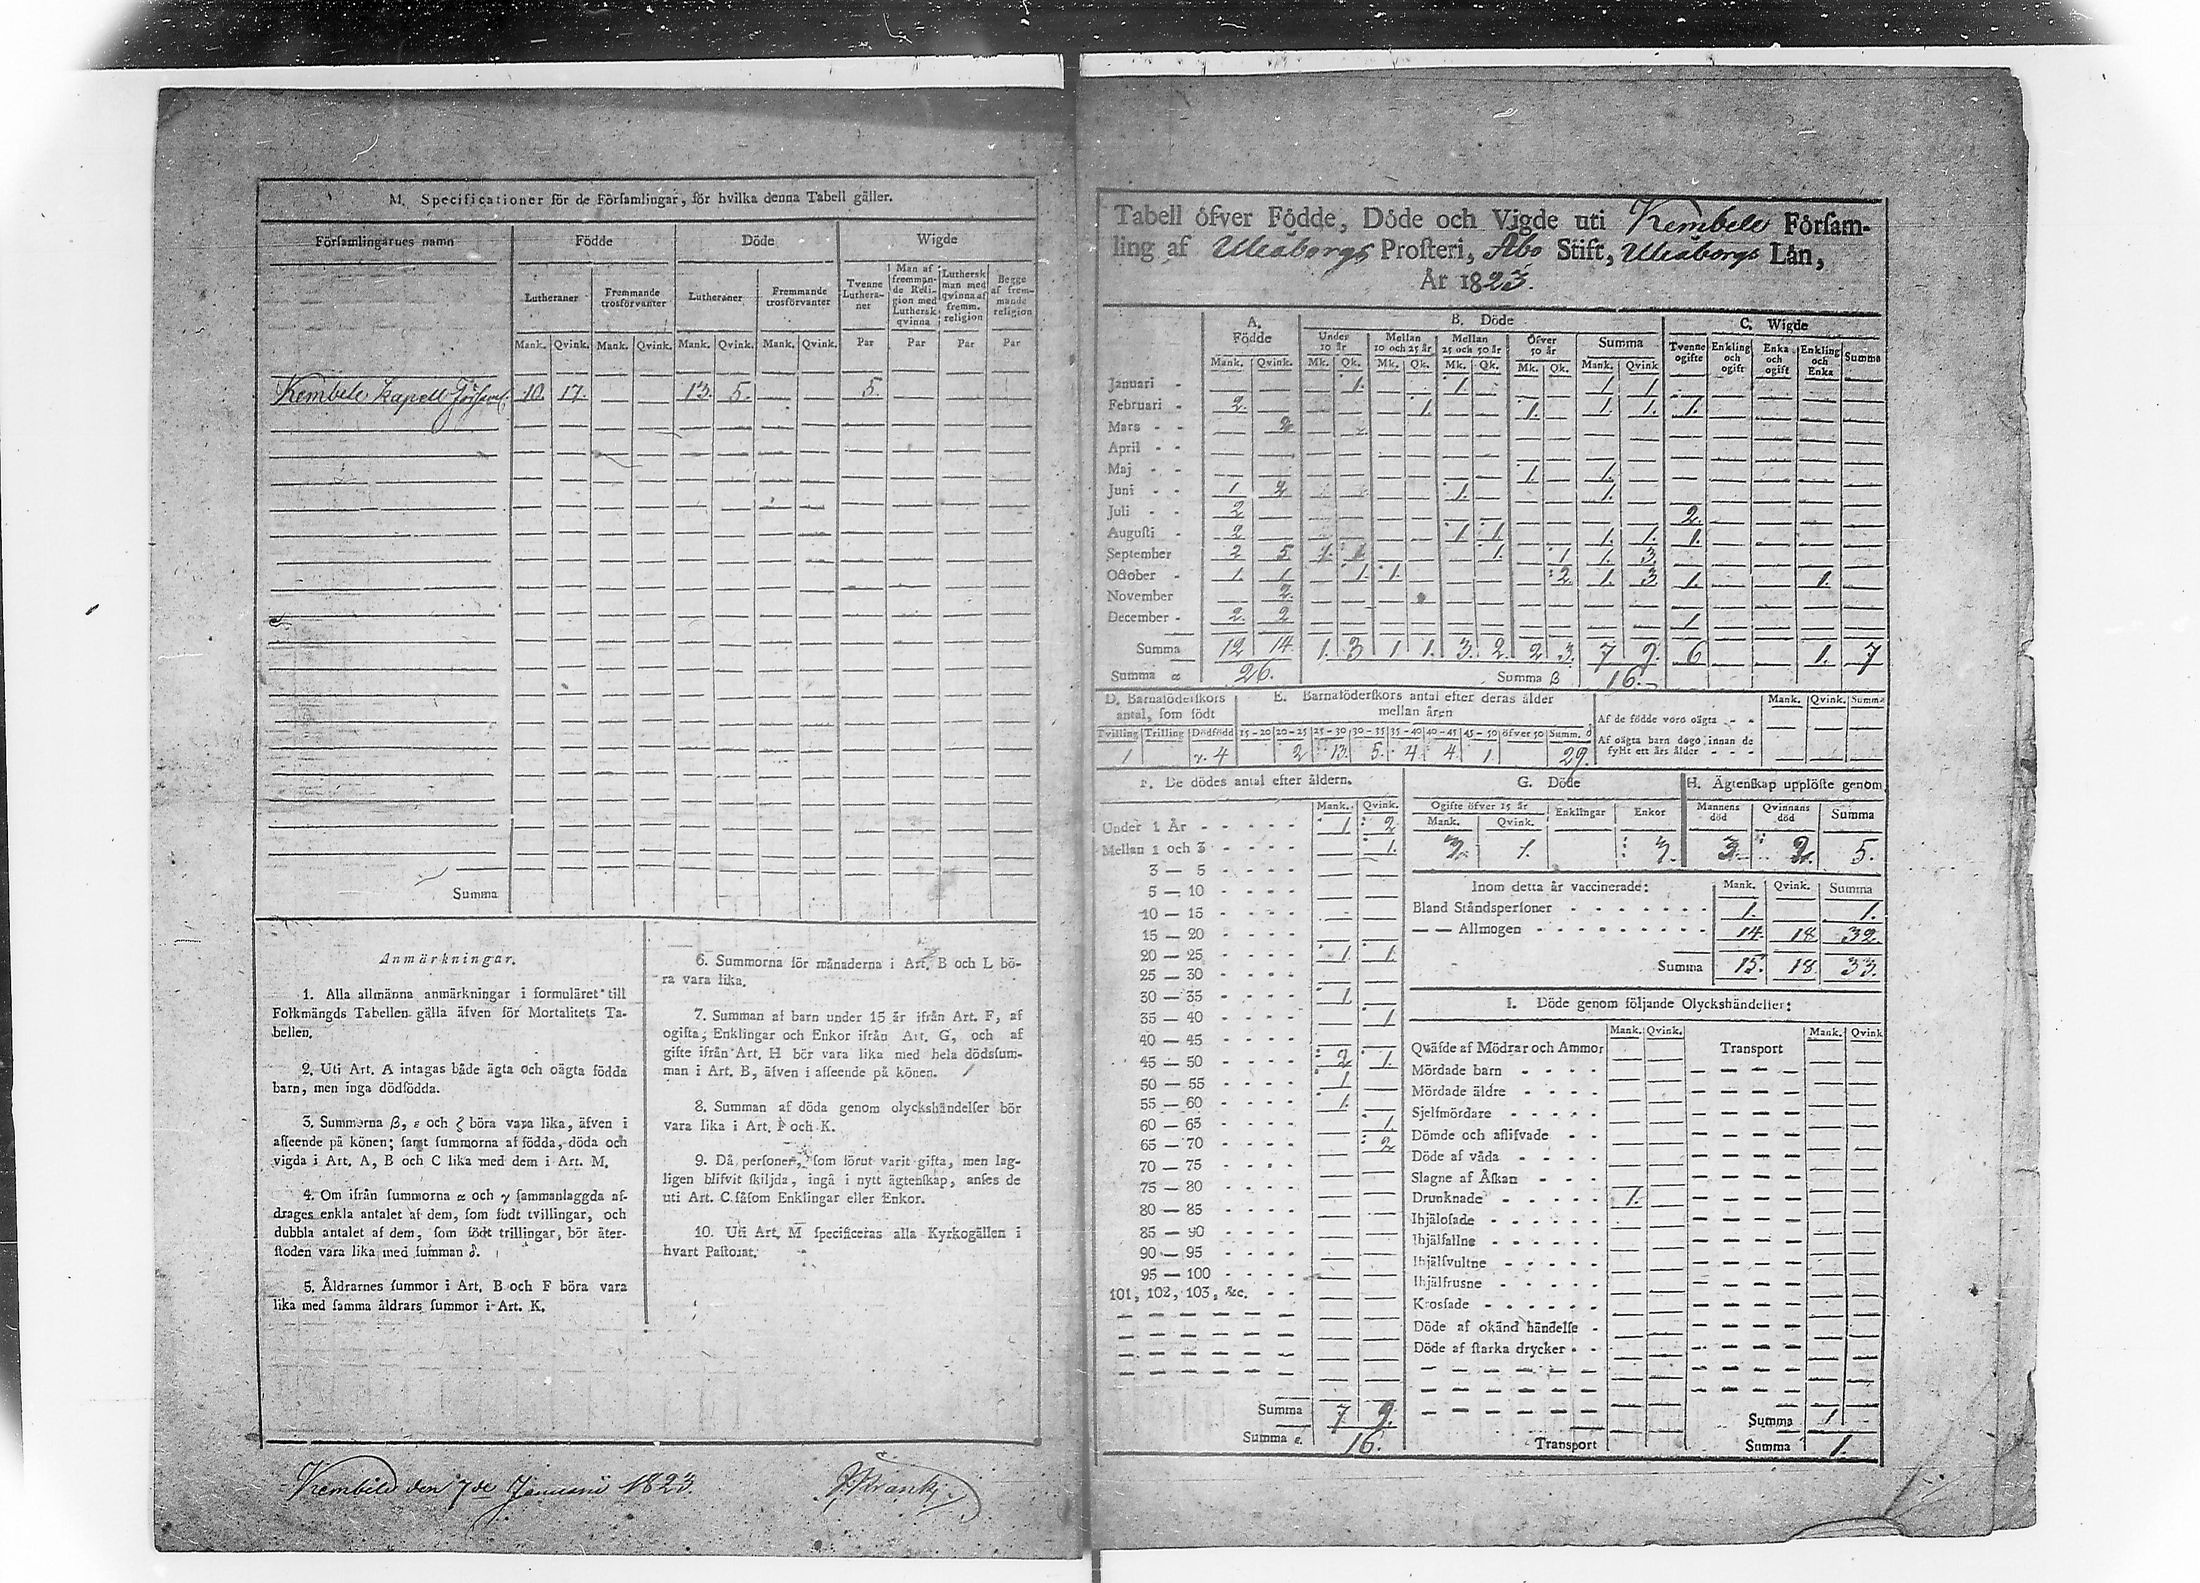 M. Specificationer för de Förſamlingar, för hvilka denna Tabell gäller.
Förſamlingarnes namn Födde Döde Wigde
Lutheraner Fremmande trosförvanter Lutheraner Fremmande trosförvanter Tvenne Lutheraner Man af fremmande Religion med Luthersk qvinna Luthersk man med qvinna af fremm. religion Begge af fremmande religion
Mank. Qvink. Mank. Qvink. Mank. Qvink. Mank. Qvink. Par Par Par Par
Kembele kapell Förſaml. 10. 17. 13. 5. 5.
Summa
Anmärkningar.
1. Alla allmänna anmärkningar i formuläret till
Folkmängds Tabellen gälla äfven för Mortalitets Ta-
bellen.
2. Uti Art. A intagas både ägta och oägta födda
barn, men inga dödfödda.
3. Summorna β, ε och ζ böra vara lika, äfven i
afſeende på könen; ſamt ſummorna af födda, döda och
vigda i Art. A, B och C lika med dem i Art. M.
4. Om ifrån ſummorna α och γ ſammanlaggda af-
drages enkla antalet af dem, ſom födt tvillingar, och
dubbla antalet af dem, ſom födt trillingar, bör åter-
ſtoden vara lika med ſumman δ.
5. Åldrarnes ſummor i Art. B och F böra vara
lika med ſamma åldrars ſummor i Art. K.
6. Summorna för månaderna i Art. B och L bö-
ra vara lika.
7. Summan af barn under 15 år ifrån Art. F, af
ogifta, Enklingar och Enkor ifrån Art. G, och af
gifte ifrån Art. H bör vara lika med hela dödsſum-
man i Art. B, äfven i afſeende på könen.
8. Summan af döda genom olyckshändelſer bör
vara lika i Art. I och K.
9. Då perſoner, ſom förut varit gifta, men lag-
ligen blifvit ſkiljda, ingå i nytt ägtenſkap, anſes de
uti Art. C ſåſom Enklingar eller Enkor.
10. Uti Art. M ſpecificeras alla Kyrkogällen i
hvart Paſtorat.
Kembele den 7de Januarii 1823.
Tabell öfver Födde, Döde och Vigde uti Kembele Förſam-
ling af Uleåborgs Proſteri, Åbo Stift, Uleåborgs Län,
År 1823.
A. Födde B. Döde C. Wigde
Under 10 år Mellan 10 och 25 år Mellan 25 och 50 år Öfver 50 år Summa Tvenne ogifte Enkling och ogift Enka och ogift Enkling och Enka Summa
Mank. Qvink. Mk. Qk. Mk. Qk. Mk. Qk. Mk. Qk. Mank. Qvink
Januari 1. 1. 1. 1.
Februari 2. 1. 1. 1. 1. 1.
Mars 2
April
Maj 1. 1.
Juni 1 2 1. 1.
Juli 2 2.
Auguſti 2 1 1 1. 1. 1.
September 2 5 1. 1. 1. 1 1. 3
October 1. 1 1. 1. 2. 1. 3 1. 1.
November 2.
December 2. 2 1
Summa 12 14 1. 3 1 1. 3. 2. 2 3. 7 9. 6 1. 7
Summa α 26. Summa β 16.
D. Barnaföderſkors antal, ſom födt
E. Barnaföderſkors antal efter deras ålder
mellan åren
Mank. Qvink. Summa
Af de födde voro oägta
Af oägta barn dogo innan de
fyllt ett års ålder
Tvilling Trilling Dödfödd 15-20 20-25 25-30 30-35 35-40 40-45 45-50 öfver 50 Summ. δ
1 γ. 4 2 13. 5. 4 4 1 29.
F. De dödes antal efter åldern.
Mank. Qvink.
Under 1 År 1 2
Mellan 1 och 3 1.
3 — 5
5 — 10
10 — 15
15 — 20
20 — 25 1 1.
25 — 30
30 — 35 1.
35 — 40 1
40 — 45
45 — 50 2 1.
50 — 55 1
55 — 60 1.
60 — 65 1
65 — 70 2
70 — 75
75 — 80
80 — 85
85 — 90
90 — 95
95 — 100
101, 102, 103, &c.
Summa 7 9.
Summa ε. 16.
G. Döde
Ogifte öfver 15 år Enklingar Enkor
Mank. Qvink.
1.
H. Ägtenſkap upplöſte genom
Mannens död Qvinnans död Summa
3 2. 5.
Inom detta år vaccinerade: Mank. Qvink. Summa
Bland Ståndsperſoner 1. 1.
— — Allmogen 14. 18 32.
Summa 15. 18. 33.
I. Döde genom följande Olyckshändelſer:
Mank. Qvink. Mank. Qvink
Qväfde af Mödrar och Ammor Transport
Mördade barn
Mördade äldre
Sjelfmördare
Dömde och aflifvade
Döde af våda
Slagne af Åſkan
Drunknade 1.
Ihjälofade
Ihjälfallne
Ihjälfvultne
Ihjälfrusne
Krosſade
Döde af okänd händelſe
Döde af ſtarka drycker
Summa 1
Transport Summa 1.